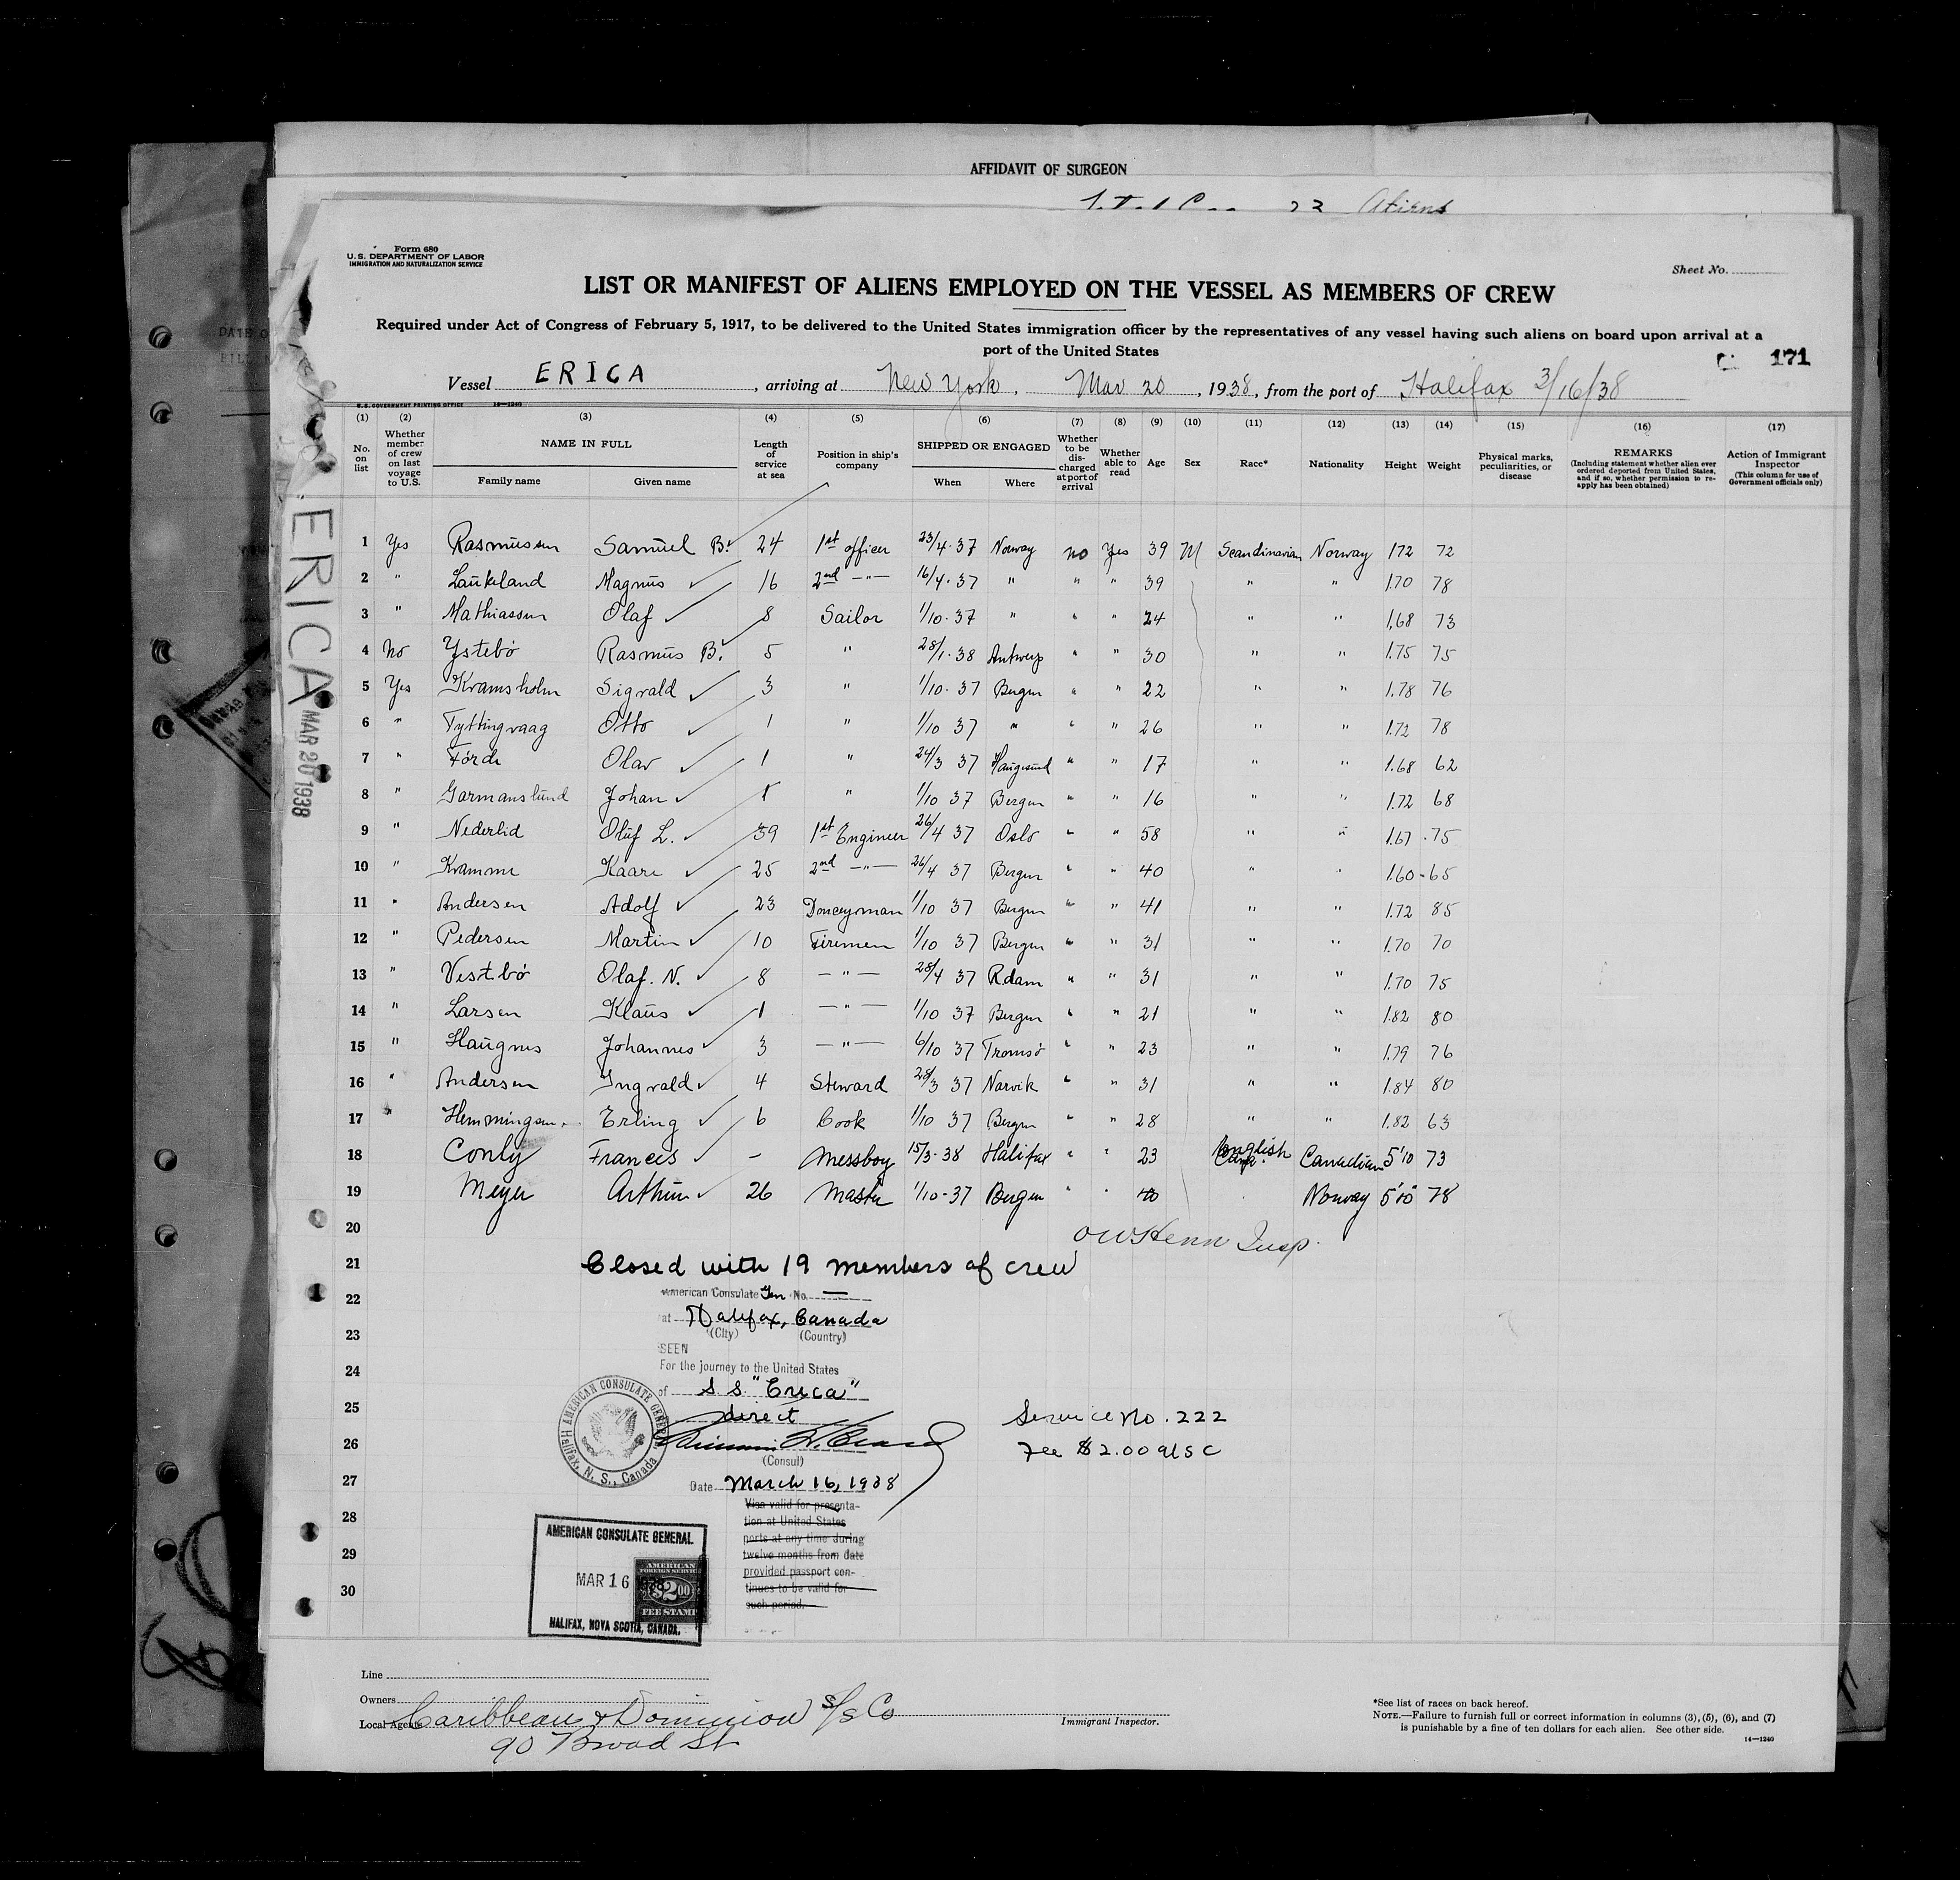 AFFIDAVIT OF SURGEON
22 Aliens
Form 680
U.S. DEPARTMENT OF LABOR
IMMIGRATION AND NATURALIZATION SERVICE
Sheet No.
LIST OR MANIFEST OF ALIENS EMPLOYED ON THE VESSEL AS MEMBERS OF CREW
Required under Act of Congress of February 5, 1917, to be delivered to the United States immigration officer by the representatives of any vessel having such aliens on board upon arrival at a
port of the United States
171
Vessel ERICA, arriving at New York. Mar 20, 1938, from the port of Halifax 3/16/38
U.S. GOVERNMENT PRINTING OFFICE 14—1240
(1) (2) (3) (4) (5) (6) (7) (8) (9) (10) (11) (12) (13) (14) (15) (16) (17)
No. on list
Whether member of crew on last voyage to U.S.
NAME IN FULL
Family name Given name
Length of service at sea
Position in ship's company
SHIPPED OR ENGAGED
When Where
Whether to be discharged at port of arrival
Whether able to read
Age
Sex
Race*
Nationality
Height
Weight
Physical marks, peculiarities, or disease
REMARKS
(Including statement whether alien ever ordered deported from United States, and if so, whether permission to re-apply has been obtained)
Action of Immigrant Inspector
(This column for use of Government officials only)
1 Yes Rasmussen Samuel B. 24 1st officer 23/4-37 Norway no Yes 39 M Scandinavian Norway 172 72
2 " Laukeland Magnus 16 2nd —"— 16/4-37 " " " 39 " " 1.70 78
3 " Mathiassen Olaf 8 Sailor 1/10-37 " " " 24 " " 1,68 73
4 No Ystebö Rasmus B. 5 " 28/1-38 Antwerp " " 30 " " 1.75 75
5 Yes Kramsholm Sigvald 3 " 1/10-37 Bergen " " 22 " " 1.78 76
6 " Tyttingvaag Otto 1 " 1/10 37 " " " 26 " " 1.72 78
7 " Förde Olav 1 " 24/3 37 Haugesund " " 17 " " 1.68 62
8 " Garmanslund Johan 1 " 1/10 37 Bergen " " 16 " " 1.72 68
9 " Nederlid Oluf L. 39 1st Engineer 26/4 37 Oslo " " 58 " " 1.67 75
10 " Kramme Kaare 25 2nd —"— 26/4 37 Bergen " " 40 " " 1.60 65
11 " Andersen Adolf 23 Donceyman 1/10 37 Bergen " " 41 " " 1.72 85
12 " Pedersen Martin 10 Firemen 1/10 37 Bergen " " 31 " " 1.70 70
13 " Vestbö Olaf. N. 8 —"— 28/4 37 R.dam " " 31 " " 1.70 75
14 " Larsen Klaus 1 —"— 1/10 37 Bergen " " 21 " " 1.82 80
15 " Haugnes Johannes 3 —"— 6/10 37 Tromsö " " 23 " " 1.79 76
16 " Andersen Ingvald 4 Steward 28/3 37 Narvik " " 31 " " 1.84 80
17 " Hemmingsen. Erling 6 Cook 1/10 37 Bergen " " 28 " " 1.82 63
18 Conly Frances - Messboy 15/3-38 Halifax " " 23 English Canadian 5'10 73
19 Meyer Arthur 26 Master 1/10-37 Bergen " " 40 Norway 5'10" 78
20
21
22
23
24
25
26
27
28
29
30
Insp.
Closed with 19 members of crew
American Consulate Gen No. —
at Halifax, Canada
(City) (Country)
SEEN
For the journey to the United States
of S.S. "Erica"
direct
(Consul)
Date March 16, 1938
Visa valid for presenta-
tion at United States
ports at any time during
twelve months from date
provided passport con-
tinues to be valid for
such period.
Service No. 222
Fee $2.00
AMERICAN CONSULATE GENERAL
Halifax, N. S., Canada
AMERICAN CONSULATE GENERAL
MAR 16
HALIFAX, NOVA SCOTIA, CANADA.
AMERICAN
FOREIGN SERVICE
$2.00
FEE STAMP
ERICA
MAR 20 1938
Line
Owners
Local Agents Caribbean & Dominion S/S Co
90 Broad St
Immigrant Inspector.
*See list of races on back hereof.
NOTE.—Failure to furnish full or correct information in columns (3), (5), (6), and (7)
is punishable by a fine of ten dollars for each alien. See other side.
14—1240